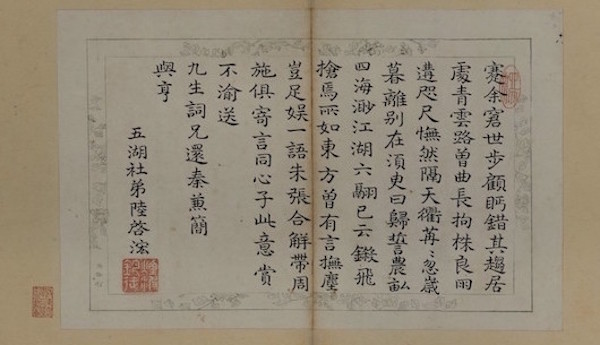 蹇余窘世步顧眄錯其趨居
處青雲路曾曲長拘株良朋
遘咫尺憮然隔天衢苒〻忽歲
暮離别在須臾曰歸誓農畝
四海渺江湖六翮已云鎩飛
搶焉所如東方曾有言撫塵
豈足娱一語朱張合解帶周
施俱寄言同心子此意賞
不渝送
九生詞兄還秦兼簡
與亨
五湖社弟陸啓浤